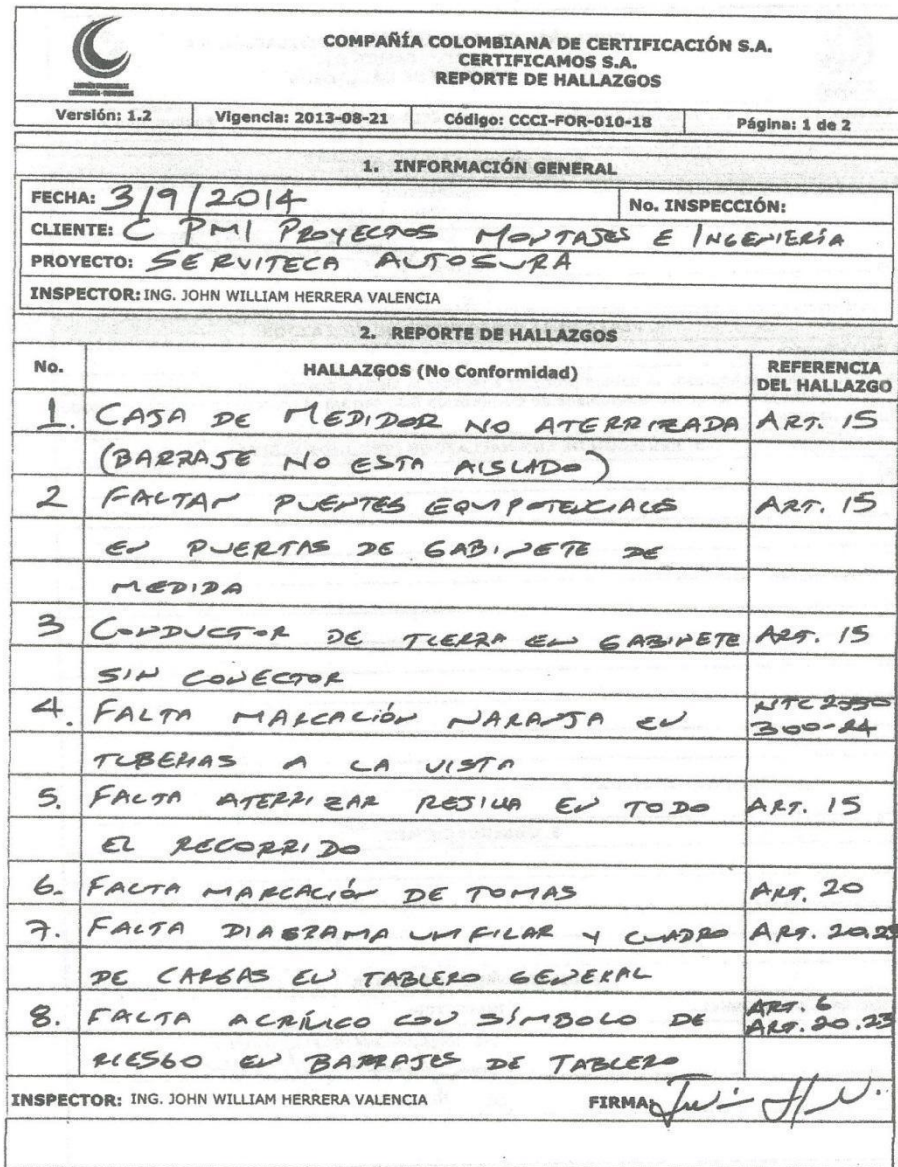 COMPAÑÍA COLOMBIANA DE CERTIFICACIÓN S.A.
CERTIFICAMOS S.A.
REPORTE DE HALLAZGOS
Versión: 1.2 Vigencia: 2013-08-21 Código: CCCI-FOR-010-18 Página: 1 de 2
1. INFORMACIÓN GENERAL
FECHA: 3/9/2014 No. INSPECCIÓN:
CLIENTE: C PMI PROYECTOS MONTAJES E INGENIERÍA
PROYECTO: SERVITECA AUTOSURA
INSPECTOR: ING. JOHN WILLIAM HERRERA VALENCIA
2. REPORTE DE HALLAZGOS
No. HALLAZGOS (No Conformidad) REFERENCIA
DEL HALLAZGO
1. CAJA DE MEDIDOR NO ATERRIZADA ART. 15
(BARRAJE NO ESTA AISLADO)
2 FALTAN PUENTES EQUIPOTENCIALES ART. 15
EN PUERTAS DE GABINETE DE
MEDIDA
3 CONDUCTOR DE TIERRA EN GABINETE ART. 15
SIN CONECTOR
4. FALTA MARCACIÓN NARANJA EN NTC 2050
300-24
TUBERIAS A LA VISTA
5. FALTA ATERRIZAR REJILLA EN TODO ART. 15
EL RECORRIDO
6. FALTA MARCACIÓN DE TOMAS ART. 20
7. FALTA DIAGRAMA UNIFILAR Y CUADRO ART. 20.23
DE CARGAS EN TABLERO GENERAL
8. FALTA ACRÍLICO CON SÍMBOLO DE ART. 6
ART. 20.23
RIESGO EN BARRAJES DE TABLERO
INSPECTOR: ING. JOHN WILLIAM HERRERA VALENCIA FIRMA: